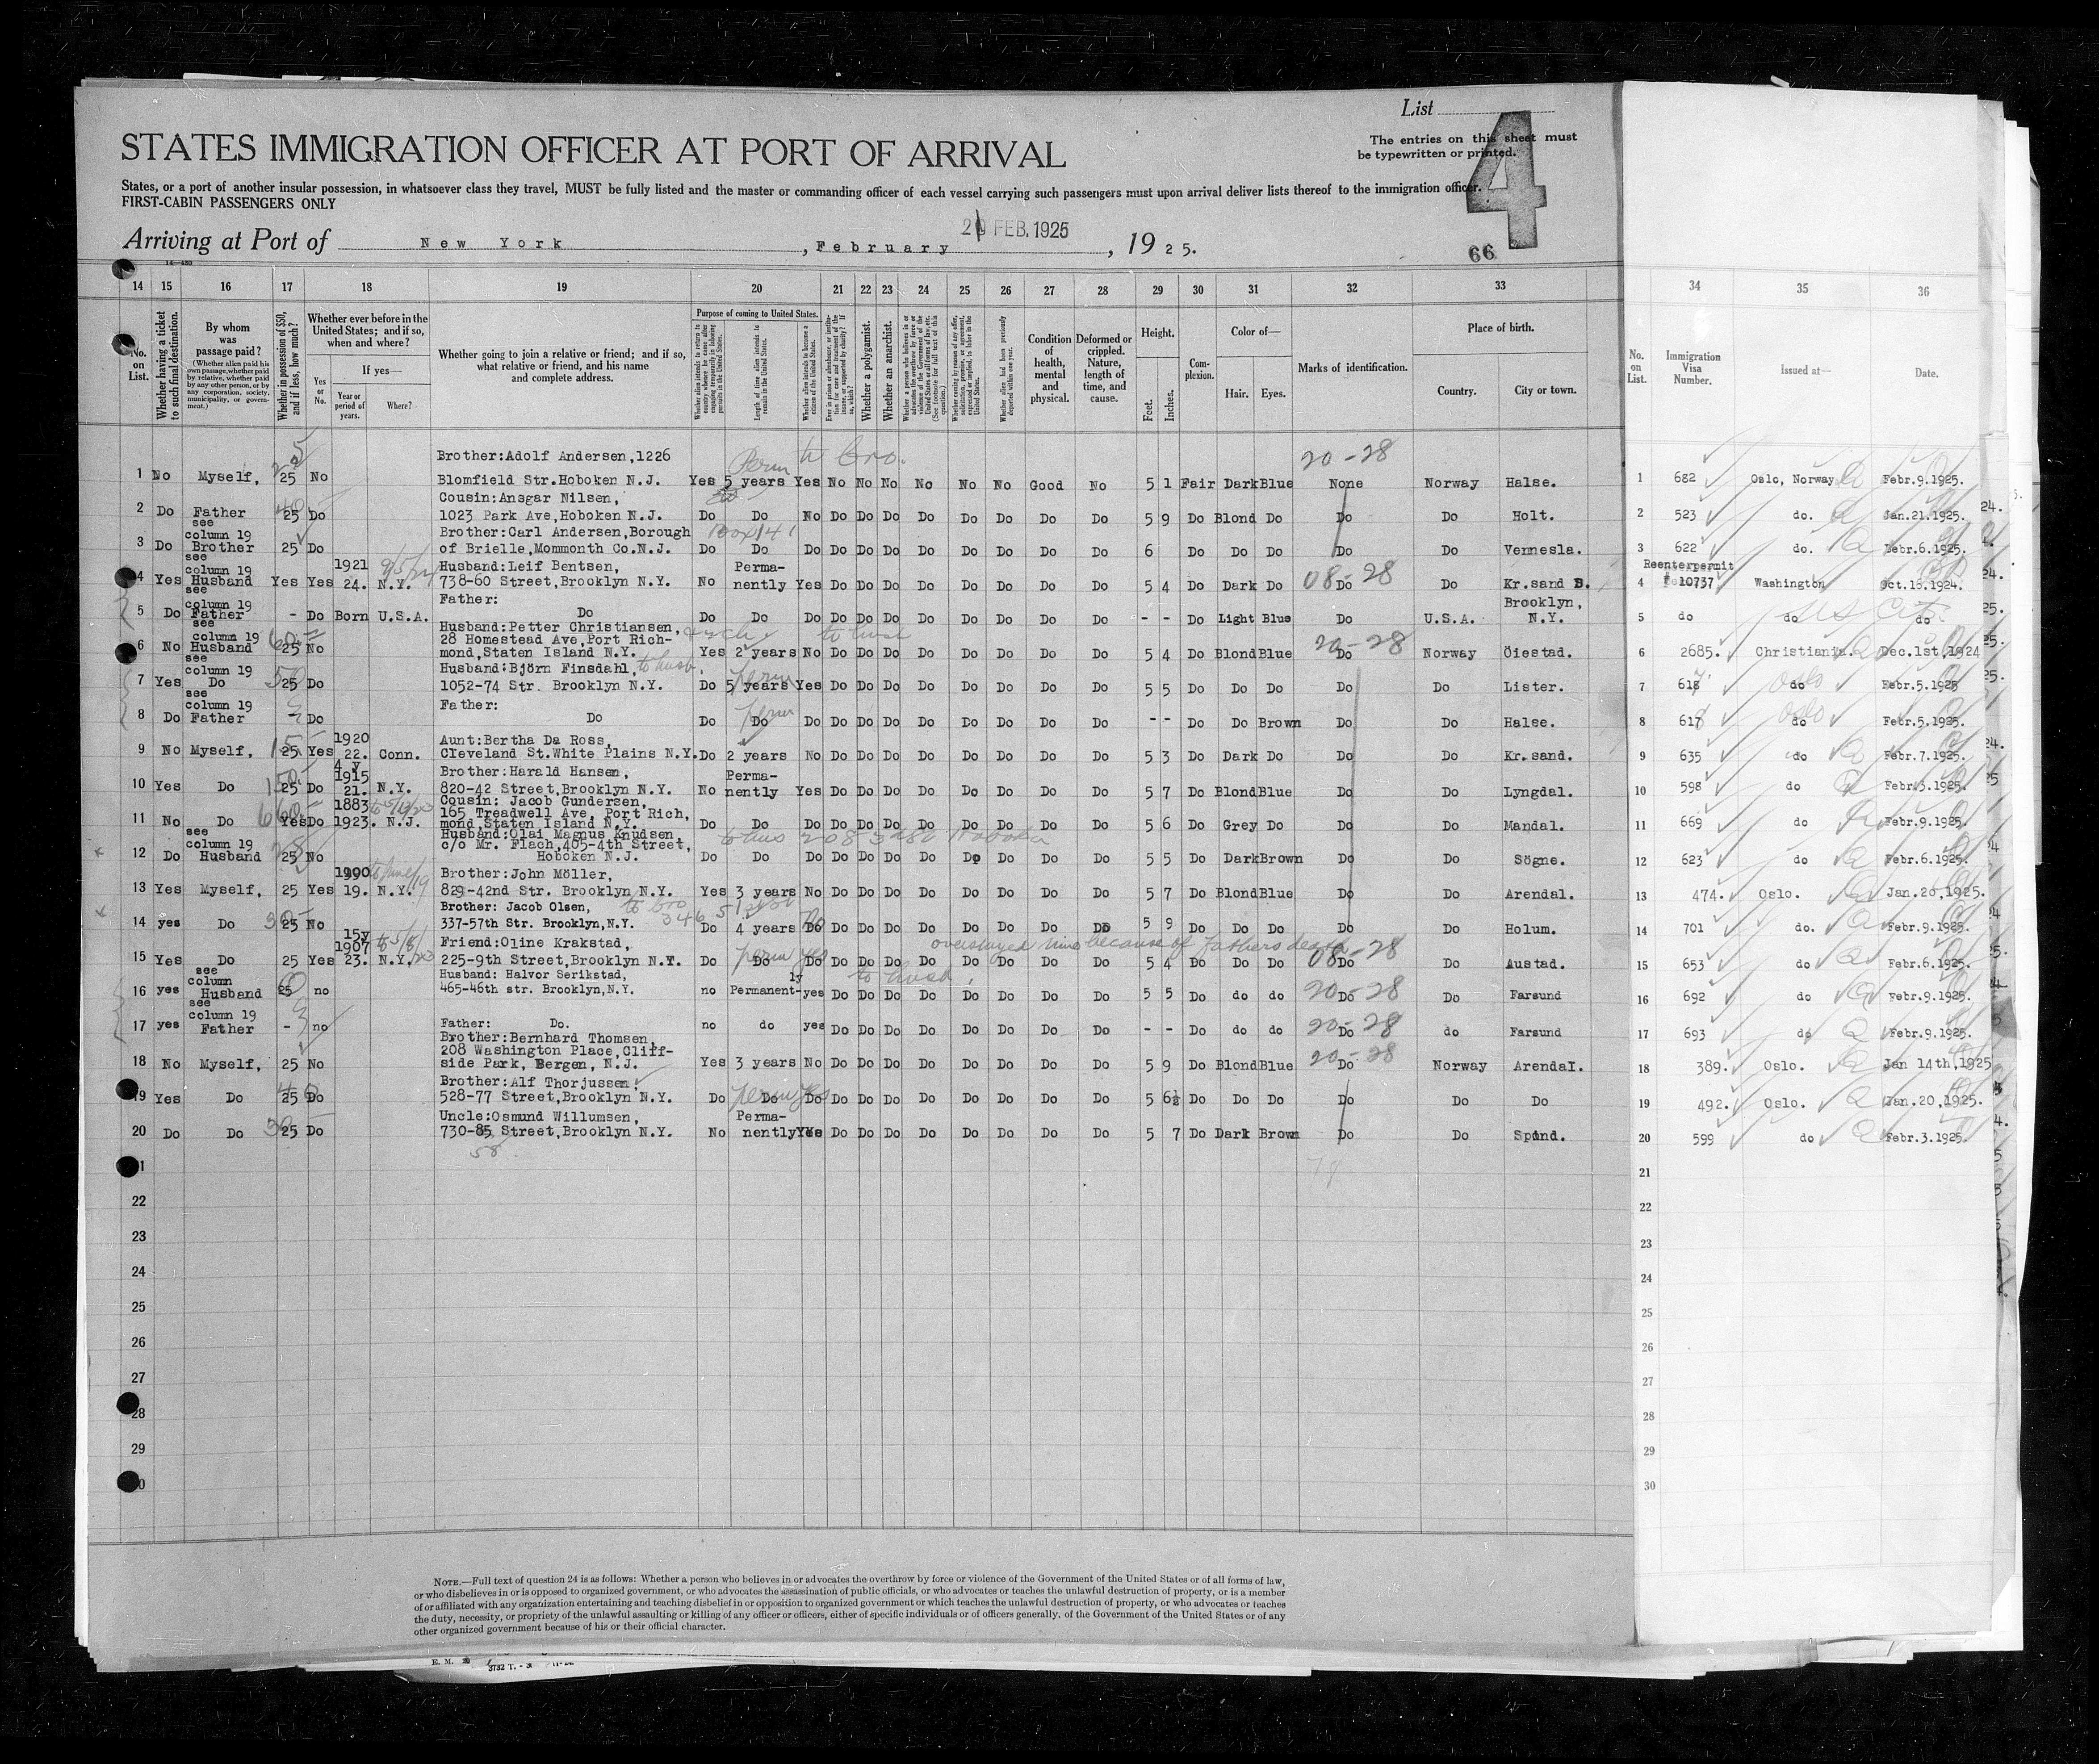 List
4
The entries on this sheet must
be typewritten or printed.
STATES IMMIGRATION OFFICER AT PORT OF ARRIVAL
States, or a port of another insular possession, in whatsoever class they travel, MUST be fully listed and the master or commanding officer of each vessel carrying such passengers must upon arrival deliver lists thereof to the immigration officer.
FIRST-CABIN PASSENGERS ONLY
Arriving at Port of New York, February 20 FEB. 1925, 1925.
66
14 15 16 17 18 19 20 21 22 23 24 25 26 27 28 29 30 31 32 33 34 35 36
No. on List.
Whether having a ticket to such final destination.
By whom was passage paid?
(Whether alien paid his own passage, whether paid by relative, whether paid by any other person, or by any corporation, society, municipality, or government.)
Whether in possession of $50, and if less, how much?
Whether ever before in the United States; and if so, when and where?
Yes or No.
If yes—
Year or period of years.
Where?
Whether going to join a relative or friend; and if so, what relative or friend, and his name and complete address.
Purpose of coming to United States.
Length of time alien intends to remain in the United States.
Whether alien intends to become a citizen of the United States.
Whether a polygamist.
Whether an anarchist.
Whether alien had been previously deported within one year.
Condition of health, mental and physical.
Deformed or crippled. Nature, length of time, and cause.
Height.
Feet.
Inches.
Complexion.
Color of—
Hair.
Eyes.
Marks of identification.
Place of birth.
Country.
City or town.
No. on List.
Immigration Visa Number.
Issued at—
Date.
Perm to bro. 20-28
Brother:Adolf Andersen,1226
1 No Myself, 25 No Blomfield Str.Hoboken N.J. Yes 5 years Yes No No No No No No Good No 5 1 Fair Dark Blue None Norway Halse. 1 682 Oslo, Norway Febr.9.1925.
Cousin:Ansgar Nilsen,
2 Do Father 25 Do 1023 Park Ave,Hoboken N.J. Do Do No Do Do Do Do Do Do Do Do 5 9 Do Blond Do Do Do Holt. 2 523 do. Jan.21.1925.
see column 19 Brother:Carl Andersen,Borough Box 141
3 Do Brother 25 Do of Brielle,Mommonth Co.N.J. Do Do Do Do Do Do Do Do Do Do Do 6 Do Do Do Do Do Vennesla. 3 622 do. Febr.6.1925.
see column 19 1921 Husband:Leif Bentsen, Perma- 08-28 Reenterpermit
4 Yes Husband Yes Yes 24. N.Y. 738-60 Street,Brooklyn N.Y. No nently Yes Do Do Do Do Do Do Do Do 5 4 Do Dark Do Do Do Kr.sand S. 4 10737 Washington Oct.15.1924.
see column 19 Father: Brooklyn,
5 Do Father - Do Born U.S.A. Do Do Do Do Do Do Do Do Do Do Do Do - - Do Light Blue Do U.S.A. N.Y. 5 do do do
see column 19 Husband:Petter Christiansen,
28 Homestead Ave,Port Rich- to husb 20-28
6 No Husband 25 No mond,Staten Island N.Y. Yes 2 years No Do Do Do Do Do Do Do Do 5 4 Do Blond Blue Do Norway Öiestad. 6 2685. Christiania. Dec.1st,1924
see column 19 Husband:Björn Finsdahl, to husb. perm
7 Yes Do 25 Do 1052-74 Str. Brooklyn N.Y. Do 5 years Yes Do Do Do Do Do Do Do Do 5 5 Do Do Do Do Do Lister. 7 618 do Oslo Febr.5.1925
see column 19 Father: perm
8 Do Father - Do Do Do Do Do Do Do Do Do Do Do Do Do - - Do Do Brown Do Do Halse. 8 617 do Oslo Febr.5.1925.
1920 Aunt:Bertha Da Ross,
9 No Myself, 25 Yes 22. Conn. Cleveland St.White Plains N.Y. Do 2 years No Do Do Do Do Do Do Do Do 5 3 Do Dark Do Do Do Kr.sand. 9 635 do Febr.7.1925.
4 y 1915 Brother:Harald Hansen, Perma-
10 Yes Do 25 Do 21. N.Y. 820-42 Street,Brooklyn N.Y. No nently Yes Do Do Do Do Do Do Do Do 5 7 Do Blond Blue Do Do Lyngdal. 10 598 do Febr.3.1925.
1883 Cousin: Jacob Gundersen,
165 Treadwell Ave, Port Rich,
11 No Do Yes Do 1923. N.J. mond,Staten Island N.Y. Do Do Do Do Do Do Do Do Do Do Do 5 6 Do Grey Do Do Do Mandal. 11 669 do Febr.9.1925.
see column 19 Husband:Olai Magnus Knudsen,
c/o Mr. Flach,405-4th Street,
12 Do Husband 25 No Hoboken N.J. Do Do Do Do Do Do Do Do Do Do Do 5 5 Do Dark Brown Do Do Sögne. 12 623 do Febr.6.1925.
1900 Brother:John Möller,
13 Yes Myself, 25 Yes 19. N.Y. 829-42nd Str. Brooklyn N.Y. Yes 3 years No Do Do Do Do Do Do Do Do 5 7 Do Blond Blue Do Do Arendal. 13 474. Oslo. Jan.20,1925.
Brother: Jacob Olsen, to bro
14 yes Do 25 No 337-57th Str. Brooklyn,N.Y. Do 4 years Do Do Do Do Do Do Do Do Do 5 9 Do Do Do Do Do Holum. 14 701 do. Febr.9.1925.
15y 1907 Friend:Oline Krakstad, overstayed time because of Fathers death 08-28
15 Yes Do 25 Yes 23. N.Y. 225-9th Street,Brooklyn N.Y. Do Do perm Do yes Do Do Do Do Do Do Do Do 5 4 Do Do Do Do Do Austad. 15 653 do Febr.6.1925.
see column Husband: Halvor Serikstad, ly to husb. 20-28
16 yes Husband 25 no 465-46th str. Brooklyn,N.Y. no Permanent- yes Do Do Do Do Do Do Do Do 5 5 Do do do Do Do Farsund 16 692 do Febr.9.1925.
see column 19 20-28
17 yes Father - no Father: Do. no do yes Do Do Do Do Do Do Do Do - - Do do do Do do Farsund 17 693 do Febr.9.1925.
Brother:Bernhard Thomsen,
208 Washington Place,Cliff- 20-28
18 No Myself, 25 No side Park, Bergen, N.J. Yes 3 years No Do Do Do Do Do Do Do Do 5 9 Do Blond Blue Do Norway Arendal. 18 389. Oslo. Jan 14th,1925
Brother:Alf Thorjussen,
19 Yes Do 25 Do 528-77 Street,Brooklyn N.Y. Do Do perm Do yes Do Do Do Do Do Do Do Do 5 6½ Do Do Do Do Do Do 19 492. Oslo. Jan.20,1925.
Uncle:Osmund Willumsen, Perma-
20 Do Do 25 Do 730-85 Street,Brooklyn N.Y. No nently Yes Do Do Do Do Do Do Do Do 5 7 Do Dark Brown Do Do Spind. 20 599 do Febr.3.1925.
58
21 21
22 22
23 23
24 24
25 25
26 26
27 27
28 28
29 29
30 30
NOTE.—Full text of question 24 is as follows: Whether a person who believes in or advocates the overthrow by force or violence of the Government of the United States or of all forms of law,
or who disbelieves in or is opposed to organized government, or who advocates the assassination of public officials, or who advocates or teaches the unlawful destruction of property, or is a member
of or affiliated with any organization entertaining and teaching disbelief in or opposition to organized government or which teaches the unlawful destruction of property, or who advocates or teaches
the duty, necessity, or propriety of the unlawful assaulting or killing of any officer or officers, either of specific individuals or of officers generally, of the Government of the United States or of any
other organized government because of his or their official character.